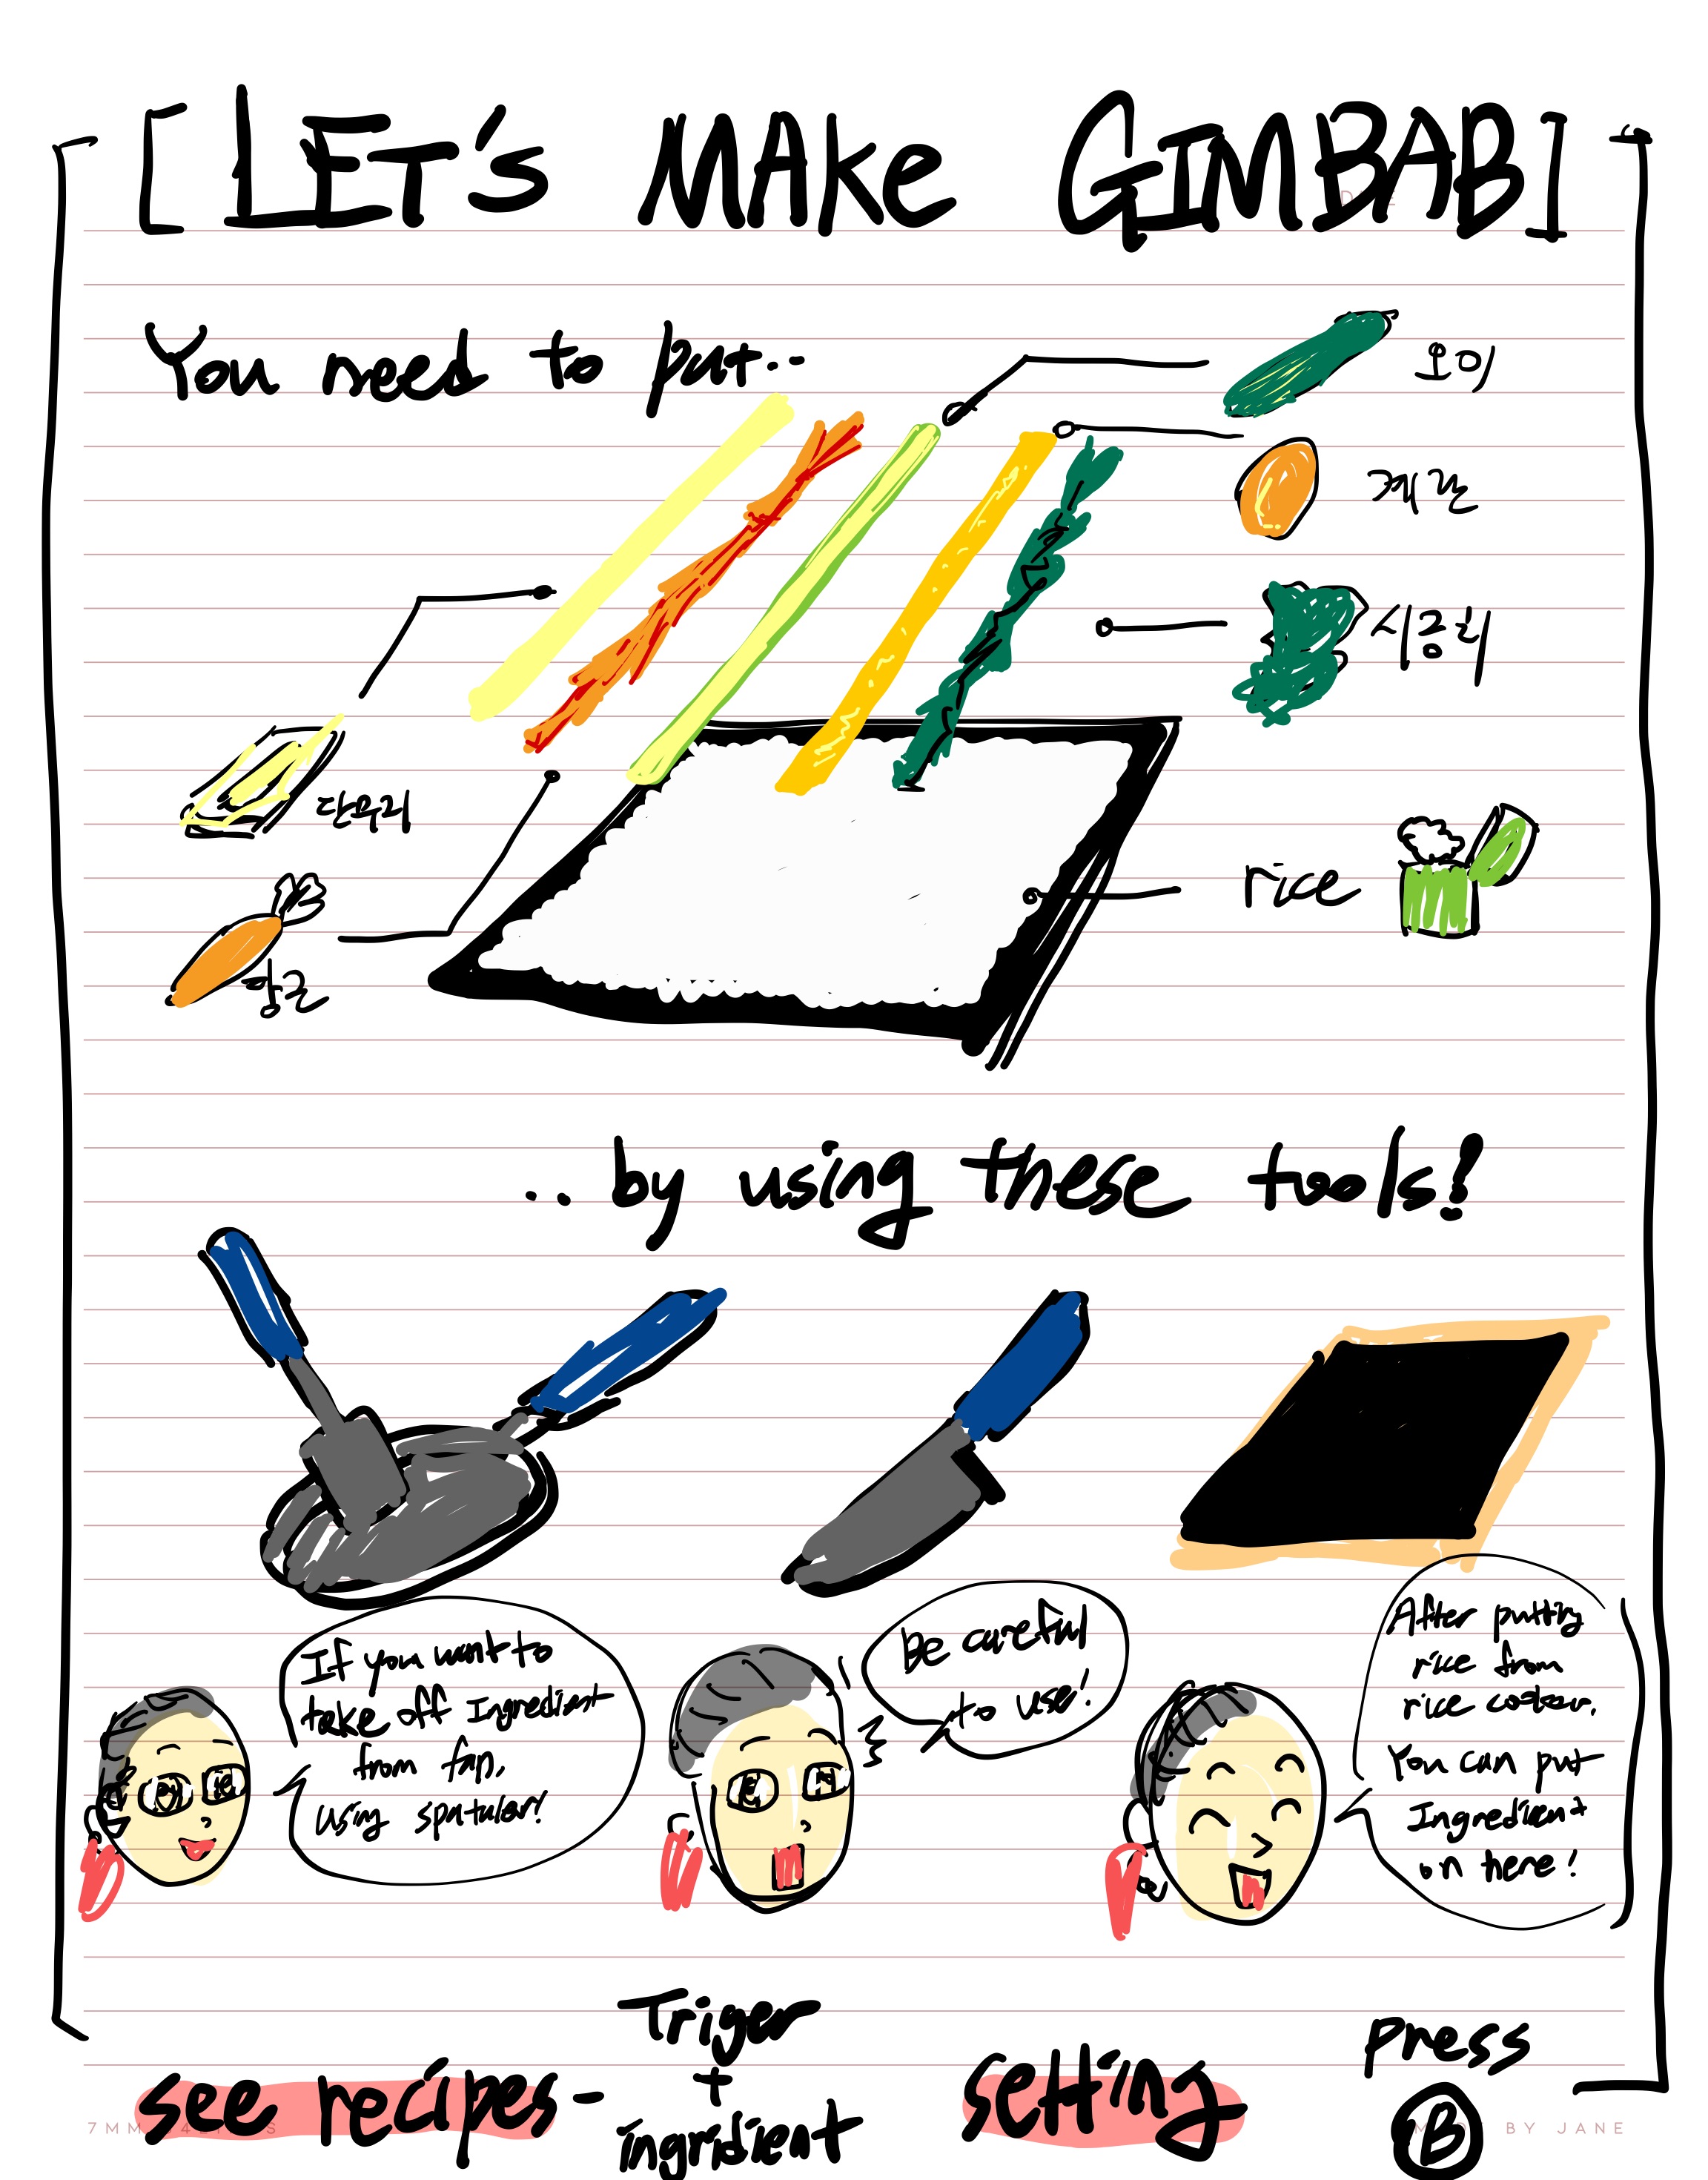 [LET's MAKe GIMBAB]
You need to put..
오이
계란
시금치
단무지
rice
당근
.. by using these tools!
If you want to
take off Ingredient
from fan,
using spatuler!
Be careful
to use!
After putting
rice from
rice cooker,
You can put
Ingredient
on here!
see recipes - Triger
+
ingridient
setting
press
B
BY JANE